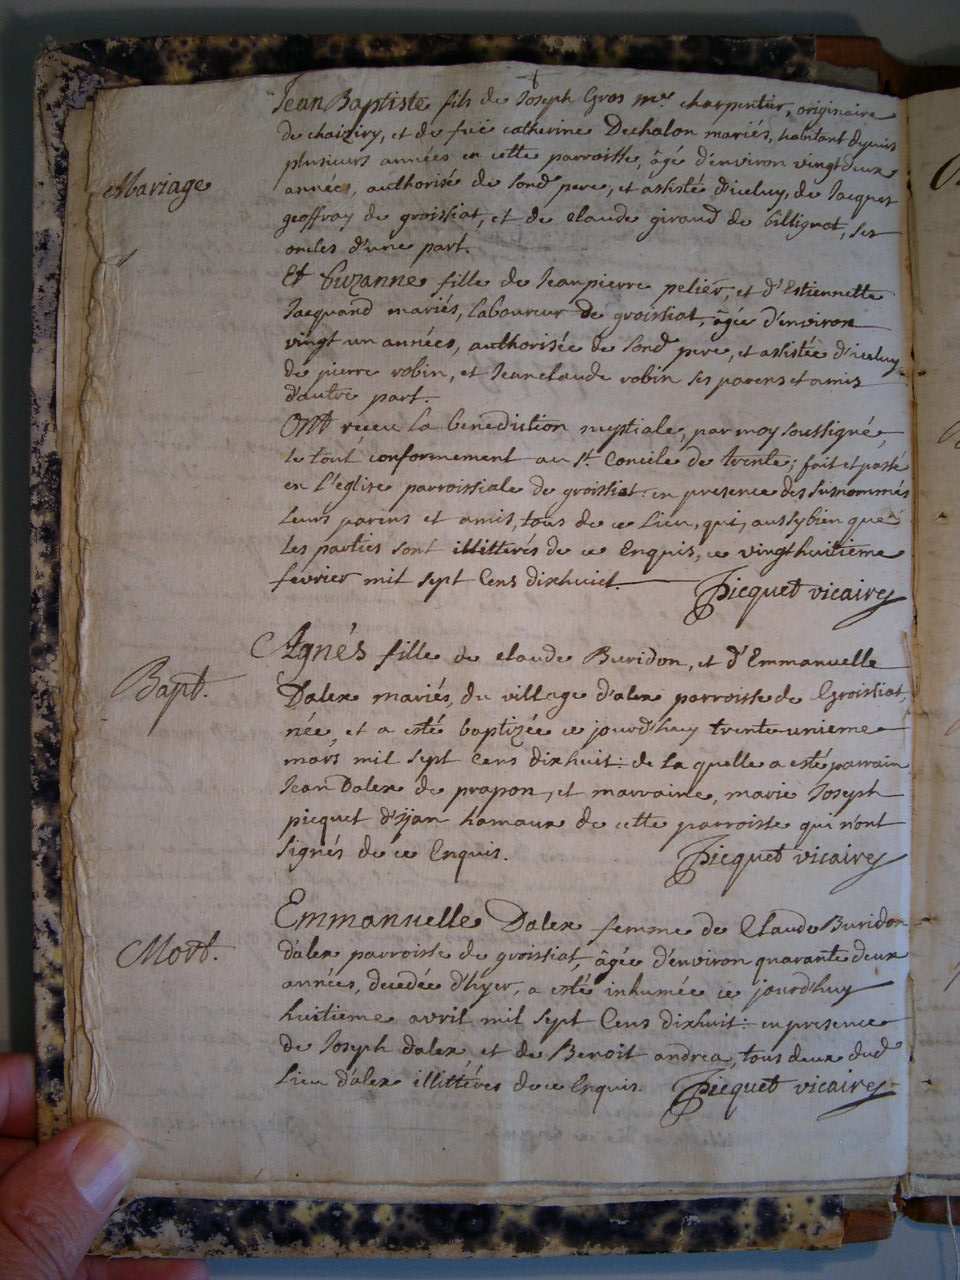 Jean Baptiste fils de Joseph Gros me. charpentier, originaire
de chaiziry, et de feüe catherine Dechalon mariés, habitant depuis
plusieurs années en cette parroisse, âgé d'environ vingt deux
Mariage
années, authorisé de sond. pere, et assisté d'iceluy, de Jacques
geoffray de groissiat, et de claude giraud de billignat, ses
oncles d'une part.
Et Suzanne fille de Jeanpierre pelier, et d'Estiennette
Jacquand mariés, laboureur de groissiat, âgée d'environ
vingt un années, authorisée de sond. pere, et assistée d'iceluy
de pierre robin, et Jeanclaude robin ses parens et amis
d'autre part.
Ont receu la benediction nuptiale, par moy soussigné,
le tout conformement au st. Concile de trente; fait et passé
en l'eglise parroissiale de groissiat. en presence des susnommés
leurs parens et amis, tous de ce lieu, qui, aussy bien que
les parties sont illitterés de ce Enquis, ce vingt huitieme
fevrier mil sept Cens dixhuict. Picquet vicaire
Agnés fille de claude Buridon, et d'Emmanuelle
Bapt.
Dalex mariés, du village d'alex parroisse de Groissiat,
née, et a esté baptizée ce jourd'huy trente unieme
mars mil sept Cens dixhuit: de laquelle a esté parrain
Jean Dalex de prapon, et marraine, marie Joseph
picquet d'ijan hamaux de cette parroisse qui n'ont
signés de ce Enquis. Picquet vicaire
Emmanuelle Dalex femme de Claude Buridon
Mort.
d'alex parroisse de groissiat, âgée d'environ quarante deux
années, decedée d'hyer, a esté inhumée ce jourd'huy
huitieme avril mil sept Cens dixhuit: en presence
de Joseph dalex, et de Benoit andrea, tous deux dud.
Lieu d'alex illitterés de ce Enquis. Picquet vicaire